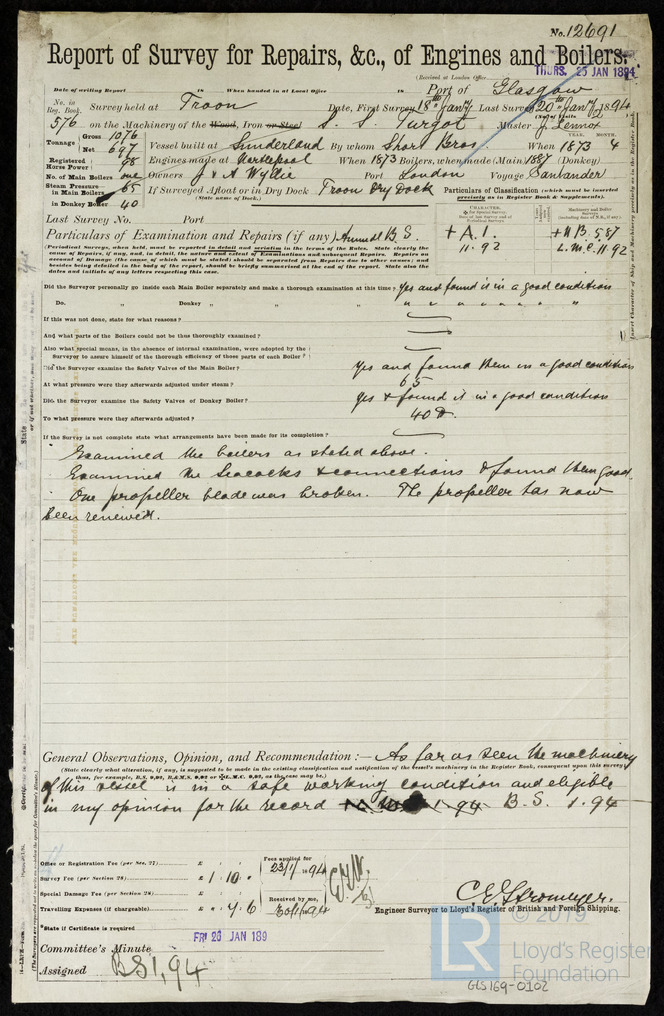 No. 12691
Report of Survey for Repairs, &c., of Engines and Boilers.
(Received at London Office
THURS. 25 JAN 1894
Date of writing Report 18 When handed in at Local Office 18 Port of Glasgow
No. in Reg. Book. Survey held at Troon Date, First Survey 18th Jany Last Survey 20th Jany 1894
(No. of Visits 2)
576 on the Machinery of the Wood, Iron or Steel S. S. Turgot Master J. Lennox
Tonnage Gross 1076 Net 697
Vessel built at Sunderland By whom Short Bros When 1873 4
YEAR. MONTH.
Registered Horse Power 98 Engines made at Hartlepool When 1873 Boilers, when made (Main) 1887 (Donkey)
No. of Main Boilers one Owners J & A Wyllie Port London Voyage Santander
Steam Pressure in Main Boilers 65 If Surveyed Afloat or in Dry Dock Troon Dry Dock
(State name of Dock.)
in Donkey Boiler 40
Particulars of Classification (which must be inserted precisely as in Register Book & Supplement).
Last Survey No. Port
Particulars of Examination and Repairs (if any) Annual B S.
+ A. 1. 11.92
+ N B. 5.87 L.M.C. 11.92
(Periodical Surveys, when held, must be reported in detail and seriatim in the terms of the Rules. State clearly the
cause of Repairs, if any, and, in detail, the nature and extent of Examinations and subsequent Repairs. Repairs on
account of Damage (the cause of which must be stated) should be separated from Repairs due to other causes; and
besides being detailed in the body of the report, should be briefly summarised at the end of the report. State also the
dates and initials of any letters respecting this case.
Did the Surveyor personally go inside each Main Boiler separately and make a thorough examination at this time? Yes and found it in a good condition
Do. " Donkey " " " " " " " " " "
If this was not done, state for what reasons?
And what parts of the Boilers could not be thus thoroughly examined?
Also what special means, in the absence of internal examination, were adopted by the
Surveyor to assure himself of the thorough efficiency of those parts of each Boiler?
Did the Surveyor examine the Safety Valves of the Main Boiler? Yes and found them in a good condition
At what pressure were they afterwards adjusted under steam? 65
Did the Surveyor examine the Safety Valves of Donkey Boiler? Yes & found it in a good condition
To what pressure were they afterwards adjusted? 40
If the Survey is not complete state what arrangements have been made for its completion?
Examined the boilers as stated above.
Examined the Seacocks & connections & found them good.
One propeller blade was broken. The propeller has now
been renewed.
General Observations, Opinion, and Recommendation:— As far as seen the machinery
(State clearly what alteration, if any, is suggested to be made in the existing classification and notification of the vessel's machinery in the Register Book, consequent upon this survey
thus, for example, B.S. 9,92, B.&M.S. 9,92 or L.M.C. 9,92, as the case may be.)
of this vessel is in a safe working condition and eligible
in my opinion for the record 1.94 B. S. 1.94
Office or Registration Fee (per Sec. 27) £ : :
Survey Fee (per Section 28) £ 1 : 10 : "
Special Damage Fee (per Section 28) £ : :
Travelling Expenses (if chargeable) £ " : 4 : 6
Fees applied for 23/1/1894
Received by me, 30/1/1894
C. E. Stromeyer.
Engineer Surveyor to Lloyd's Register of British and Foreign Shipping.
State if Certificate is required
Committee's Minute FRI 26 JAN 189
Assigned BS 1,94
© 2019
LR
Lloyd's Register
Foundation
GLS169-0102